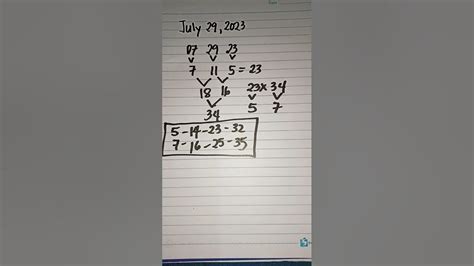 July 29, 2023
07 29 23
7 11 5 = 23
18 16 23 x 34
34 5 7
5-14-23-32
7-16-25-35